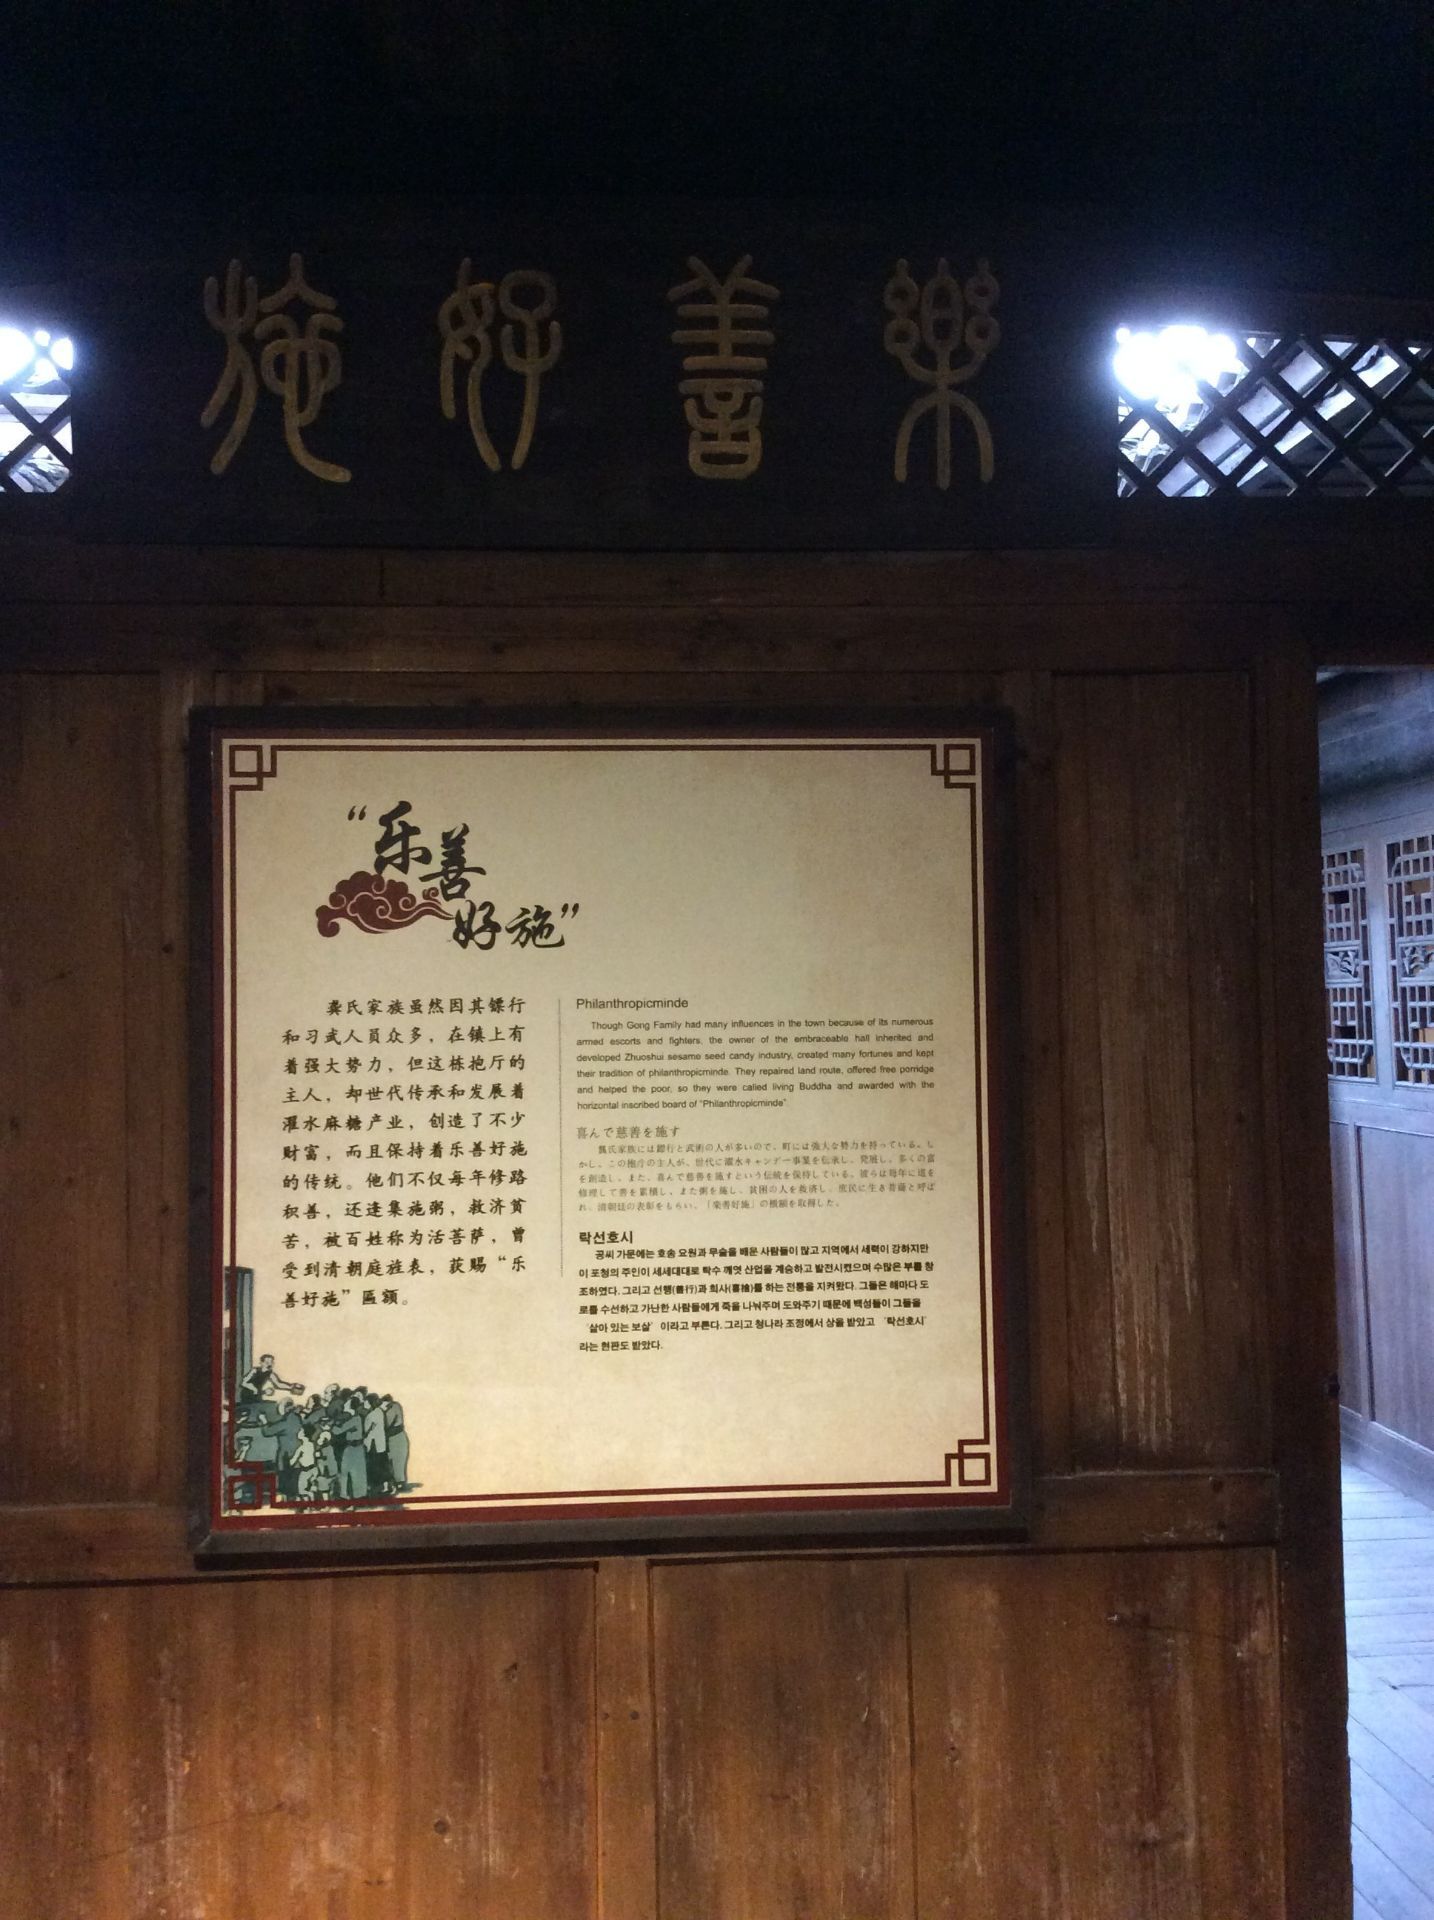 樂善好施
“乐善
好施”
龚氏家族虽然因其镖行
和习武人员众多，在镇上有
着强大势力，但这栋抱厅的
主人，却世代传承和发展着
濯水麻糖产业，创造了不少
财富，而且保持着乐善好施
的传统。他们不仅每年修路
积善，还逢集施粥，救济贫
苦，被百姓称为活菩萨，曾
受到清朝庭旌表，获赐“乐
善好施”匾额。
Philanthropicminde
Though Gong Family had many influences in the town because of its numerous
armed escorts and fighters, the owner of the embraceable hall inherited and
developed Zhuoshui sesame seed candy industry, created many fortunes and kept
their tradition of philanthropicminde. They repaired land route, offered free porridge
and helped the poor, so they were called living Buddha and awarded with the
horizontal inscribed board of “Philanthropicminde”.
喜んで慈善を施す
龔氏家族には鏢行と武術の人が多いので、町には強大な勢力を持っている。し
かし、この抱庁の主人が、世代に濯水キャンデー事業を伝承し、発展し、多くの富
を創造し、また、喜んで慈善を施すという伝統を保持している。彼らは毎年に道を
修理して善を累積し、また粥を施し、貧困の人を救済し、庶民に生き菩薩と呼ば
れ、清朝廷の表彰をもらい、「楽善好施」の横額を取得した。
락선호시
공씨 가문에는 호송 요원과 무술을 배운 사람들이 많고 지역에서 세력이 강하지만
이 포청의 주인이 세세대대로 탁수 깨엿 산업을 계승하고 발전시켰으며 수많은 부를 창
조하였다. 그리고 선행(善行)과 희사(喜捨)를 하는 전통을 지켜왔다. 그들은 해마다 도
로를 수선하고 가난한 사람들에게 죽을 나눠주며 도와주기 때문에 백성들이 그들을
‘살아 있는 보살’이라고 부른다. 그리고 청나라 조정에서 상을 받았고 ‘락선호시’
라는 현판도 받았다.